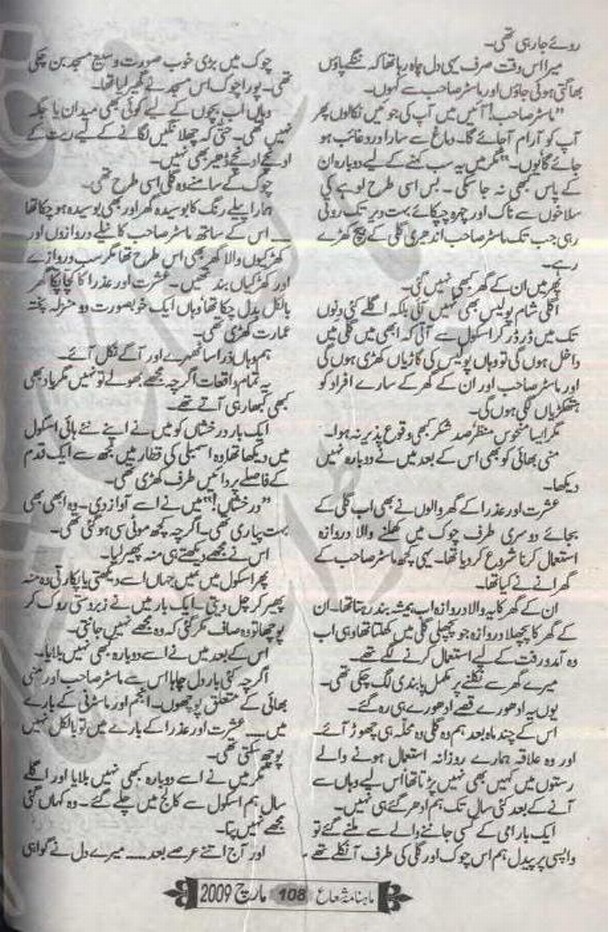 روئے جا رہی تھی۔
میرا اس وقت صرف یہی دل چاہ رہا تھا کہ ننگے پاؤں
بھاگتی ہوئی جاؤں اور ماسٹر صاحب سے کہوں۔
”ماسٹر صاحب! آئیں میں آپ کی جوئیں نکالوں پھر
آپ کو آرام آ جائے گا۔ دماغ سے سارا درد غائب ہو
جائے گا کیوں۔“ مگر میں یہ سب کہنے کے لیے دوبارہ ان
کے پاس کبھی نہ جا سکی۔ بس اسی طرح لوہے کی
سلاخوں سے ناک اور چہرہ چپکائے بہت دیر تک روتی
رہی جب تک ماسٹر صاحب اندھیری گلی کے بیچ کھڑے
رہے۔
پھر میں ان کے گھر کبھی نہیں گئی۔
اگلی شام پولیس بھی نہیں آئی بلکہ اگلے کئی دنوں
تک میں ڈر ڈر کر اسکول سے آتی کہ ابھی میں گلی میں
داخل ہوں گی تو وہاں پولیس کی گاڑیاں کھڑی ہوں گی
اور ماسٹر صاحب اور ان کے گھر کے سارے افراد کو
ہتھکڑیاں لگی ہوں گی۔
مگر ایسا منحوس منظر صد شکر کبھی وقوع پذیر نہ ہوا۔
منی بھائی کو بھی اس کے بعد میں نے دوبارہ نہیں
دیکھا۔
عشرت اور عذرا کے گھر والوں نے بھی اب گلی کے
بجائے دوسری طرف چوک میں کھلنے والا دروازہ
استعمال کرنا شروع کر دیا تھا۔ یہی کچھ ماسٹر صاحب کے
گھرانے نے کیا تھا۔
ان کے گھر کا یہ والا دروازہ اب ہمیشہ بند رہتا تھا۔ ان
کے گھر کا پچھلا دروازہ جو پچھلی گلی میں کھلتا تھا وہی اب
وہ آمد و رفت کے لیے استعمال کرنے لگے تھے۔
میرے گھر سے نکلنے پر مکمل پابندی لگ چکی تھی۔
یوں یہ ادھورے قصے ادھورے ہی رہ گئے۔
اس کے چند ماہ بعد ہم وہ گلی وہ محلہ ہی چھوڑ آئے۔
اور وہ علاقہ ہمارے روزانہ استعمال ہونے والے
رستوں میں کہیں بھی نہیں پڑتا تھا اس لیے وہاں سے
آنے کے بعد کئی سال تک ہم ادھر گئے ہی نہیں۔
ایک بار امی کے کسی جاننے والے سے ملنے گئے تو
واپسی پر پیدل ہم اس چوک اور گلی کی طرف آ نکلے تھے۔
چوک میں بڑی خوب صورت وسیع مسجد بن چکی
تھی۔ پورا چوک اس مسجد نے گھیر لیا تھا۔
وہاں اب بچوں کے لیے کوئی بھی میدان یا جگہ
نہیں تھی۔ حتیٰ کہ چھلانگیں لگانے کے لیے ریت کے
اونچے اونچے ڈھیر بھی نہیں۔
چوک کے سامنے وہ گلی اسی طرح تھی۔
ہمارا پیلے رنگ کا بوسیدہ گھر اور بھی بوسیدہ ہو چکا تھا
۔۔۔ اس کے ساتھ ماسٹر صاحب کا نیلے دروازوں اور
کھڑکیوں والا گھر بھی اس طرح تھا مگر سب دروازے
اور کھڑکیاں بند تھیں۔ عشرت اور عذرا کا کچا پکا گھر
بالکل بدل چکا تھا وہاں ایک خوبصورت دو منزلہ پختہ
عمارت کھڑی تھی۔
ہم وہاں ذرا سا ٹھہرے اور آگے نکل آئے۔
یہ تمام واقعات اگرچہ مجھے بھولے تو نہیں مگر یاد بھی
کبھی کبھار ہی آتے تھے۔
ایک بار درخشاں کو میں نے اپنے نئے ہائی اسکول
میں دیکھا تھا وہ اسمبلی کی قطار میں مجھ سے ایک قدم
کے فاصلے پر دائیں طرف کھڑی تھی۔
”درخشاں!“ میں نے اسے آواز دی۔ وہ ابھی بھی
بہت پیاری تھی۔ اگرچہ کچھ موٹی سی ہو گئی تھی۔
اس نے مجھے دیکھتے ہی منہ پھیر لیا۔
پھر اسکول میں میں جہاں اسے دیکھتی یا پکارتی وہ منہ
پھیر کر چل دیتی۔ ایک بار میں نے زبردستی روک کر
پوچھا تو وہ صاف مکر گئی کہ وہ مجھے نہیں جانتی۔
اس کے بعد میں نے اسے دوبارہ کبھی نہیں بلایا۔
اگرچہ کئی بار دل چاہا اس سے ماسٹر صاحب اور منی
بھائی کے متعلق پوچھوں۔ انجم اور ماسٹرنی کے بارے
میں ۔۔۔ عشرت اور عذرا کے بارے میں تو بالکل نہیں
پوچھ سکتی تھی۔
مگر میں نے اسے دوبارہ کبھی نہیں بلایا اور اگلے
سال ہم اسکول سے کالج میں چلے گئے۔ وہ کہاں گئی
مجھے نہیں پتا۔
اور آج اتنے عرصے بعد ۔۔۔ میرے دل نے گواہی
ماہنامہ شعاع 108 مارچ 2009